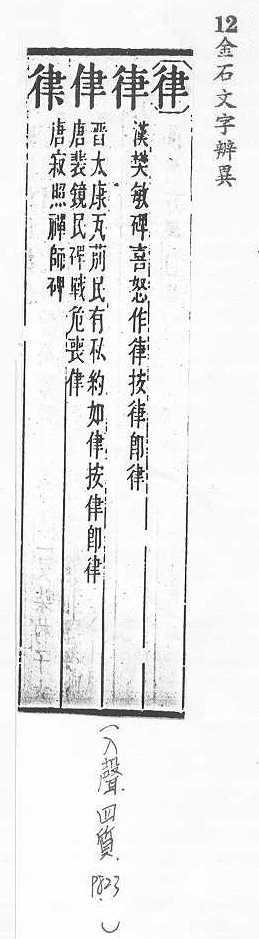 12金石文字辨異
〔律〕
律 漢樊敏碑喜怒作律按律即律
侓 晉太康瓦莂民有私約如侓按侓即律
唐裴鏡民碑戰危喪侓
律 唐寂照禪師碑
(入聲.四質. P823)